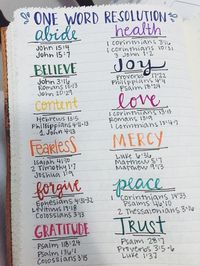 ONE WORD RESOLUTION
abide
John 15:4
John 15:7
BELIEVE
John 3:16
Romans
John 20:29
content
Hebrews 13:5
Philippians
John 4:13
FEARLESS
Isaiah 41:10
2 Timothy 1:7
Joshua 1:9
forgive
Ephesians 4:31-32
Leviticus 19:18
Colossians 3:13
GRATITUDE
Psalm 118:24
Psalm
Colossians 3:15
health
1 Corinthians
1 Corinthians 10:31
3 John
Joy
Proverbs 17:22
Philippians 4:4
Psalm 118:24
love
1 Corinthians 13:13
Romans
1 Corinthians 13:4-7
MERCY
Luke 6:36
Matthew 5:7
Matthew 9:13
peace
1 Corinthians 14:33
Psalms 46:10
2 Thessalonians 3:16
TRUST
Psalm 28:7
Proverbs 3:5-6
Luke 1:37